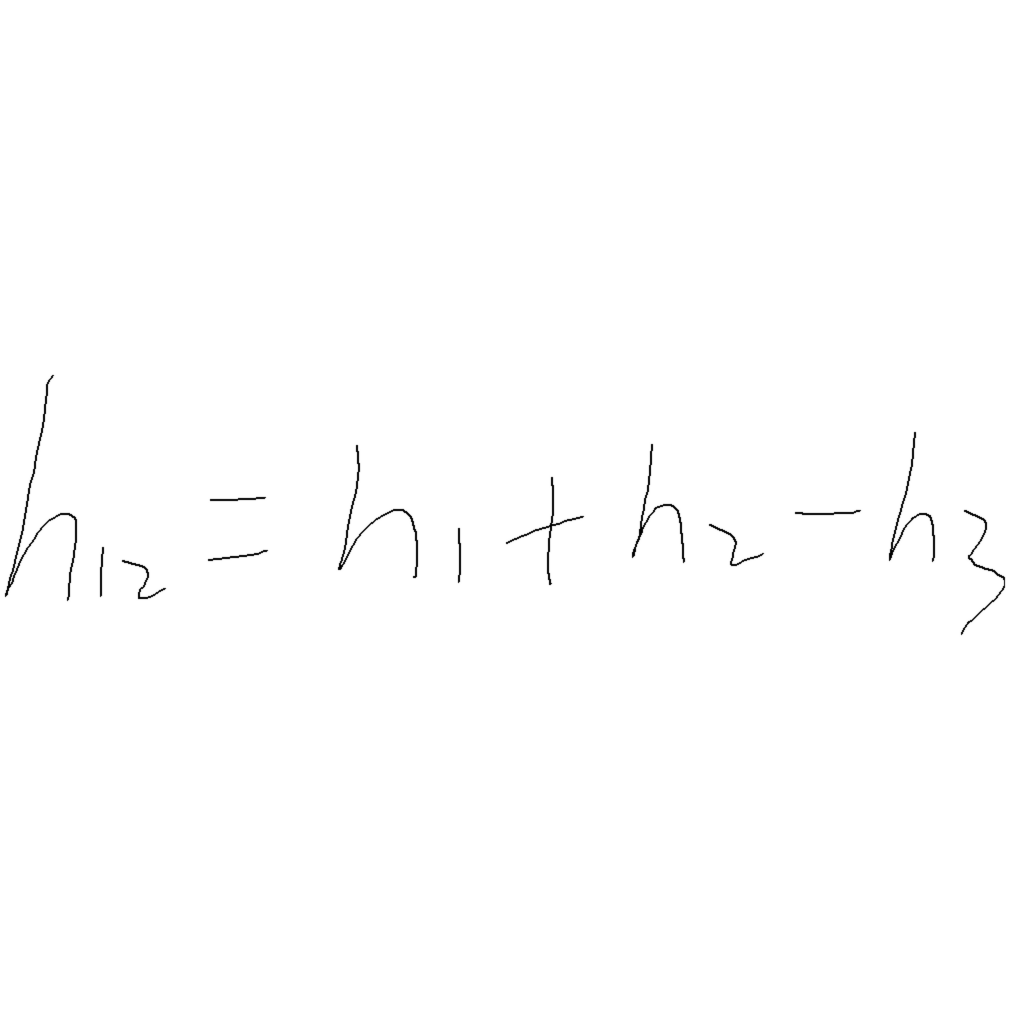 h₁₂ = h₁ + h₂ − h₃